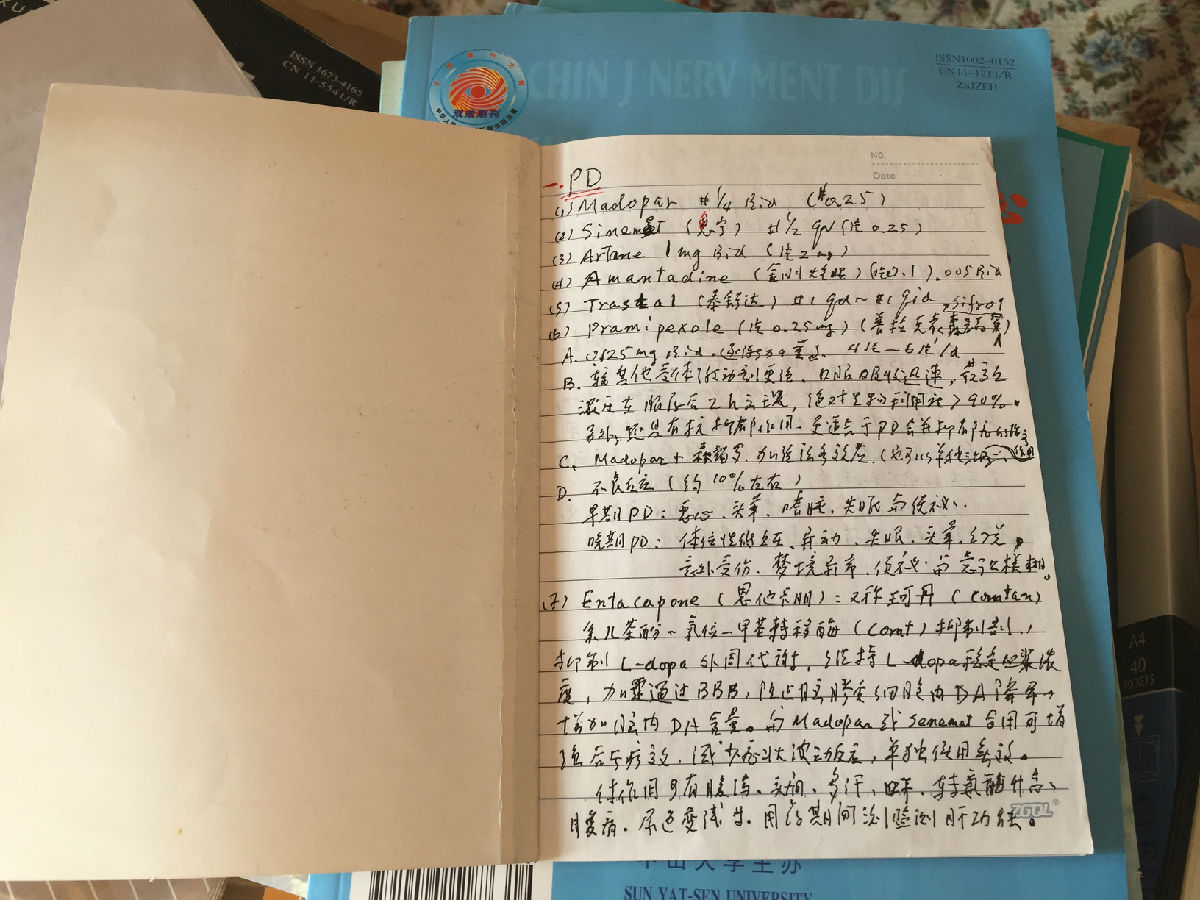 ISSN 1673-4165
CN 11-5541/R
CHIN J NERV MENT D
ISSN1002-0152
CN44-1213/R
ZSJZFB
双效期刊
NO.
Date
一. PD
(1) Madopar #1/4 Bid (#0.25)
(2) Sinemet (息宁) #1/2 qd (片0.25)
(3) Artane 1mg Bid (片2mg)
(4) Amantadine (金刚烷胺) (片0.1) .005 Bid
(5) Trastal (泰舒达) #1 qd~#1 qid
(6) Pramipexole (片0.25mg) (普拉克索 Sifrol
A. 0.125mg Bid. 逐渐 4片—6片/d
B. 较其他受体激动剂更强. 口服吸收迅速, 最高
浓度在服药后2h出现, 绝对生物利用社>90%.
另外, 还具有抗抑郁作用. 更适合于PD合并抑郁
C. Madopar + 森福罗. 加强治疗效应. (也可以单独
D. 不良反应 (约10%左右)
早期PD: 恶心、头晕、嗜睡、失眠与便秘.
晚期PD: 体位性低血压、异动、失眠、头晕、幻觉,
意外受伤、梦境异常、便秘与意识模糊.
(7) Entacapone (恩他卡朋): 又称珂丹 (Comtan)
系儿茶酚-氧位-甲基转移酶 (Comt) 抑制剂,
抑制L-dopa外周代谢, 维持L-dopa稳定血浆浓
度, 加量通过BBB, 阻止脑胶质细胞内DA降解,
增加脑内DA含量。与Madopar或Senemet合用可增
强后者疗效. 减少症状波动反应, 单独使用无效。
付作用只有腹泻、头痛、多汗、口干、转氨酶升高、
腹痛、尿色变浅等. 用药期间测验测肝功能。
ZGQL
A4
40
POCKETS
中山大学主办
SUN YAT-SEN UNIVERSITY